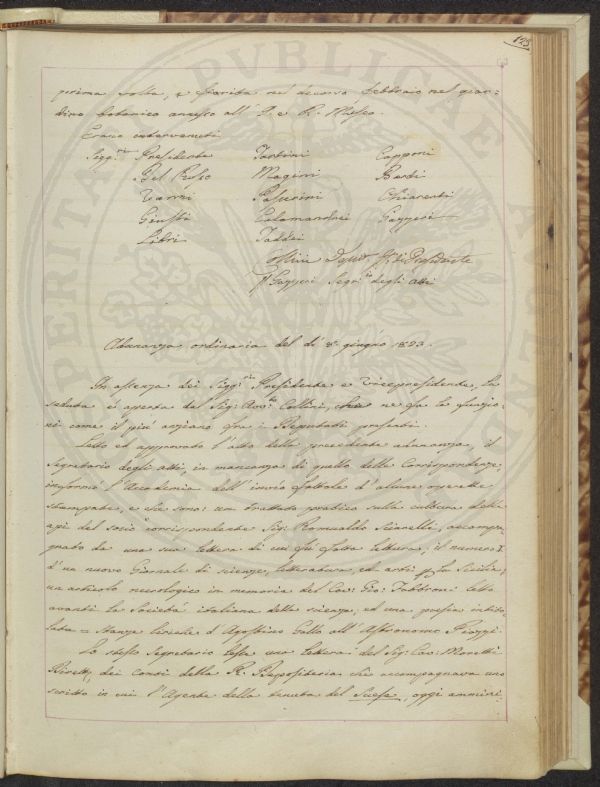 125
prima volta, e fiorita nel decorso febbraio nel giar-
dino botanico annesso all' I. e R. Museo.
Erano intervenuti
Sigg.ri Presidente Tartini Capponi
Del Rosso Magini Bardi
Vanni Passerini Chiarenti
Giusti Calamandrei Gazzeri
Libri Taddei
Dep.to ff. di Presidente
Gazzeri Segr.io degli Atti
Adunanza ordinaria del dì 8 giugno 1823.
In assenza dei Sigg.ri Presidente e Vicepresidente, la
seduta è aperta dal Sig. Avv.to Collini, che ne fa le funzio-
ni come il più anziano fra i Deputati presenti.
Letto ed approvato l'atto della precedente adunanza, il
Segretario degli atti, in mancanza di quello delle Corrispondenze,
informò l'Accademia dell'invio fattole d'alcune operette
stampate, e che sono: un trattato pratico sulla cultura delle
api del socio corrispondente Sig. Romualdo accompa-
gnato da una sua lettera di cui fu fatta lettura, il numero I.
d'un nuovo Giornale di scienze, letteratura, ed arti p. la Sicilia,
un articolo necrologico in memoria del Cav. Gio. Fabbroni letto
avanti la Società italiana delle scienze, ed una poesia intito-
lata = Stanze liriche d'Agostino Gallo all'Astronomo Piazzi.
Lo stesso Segretario lesse una lettera del Sig. Cav. Moretti
dei conti della R. Depositeria che accompagnava uno
scritto in cui l'Agente della tenuta del Suese, oggi ammini-